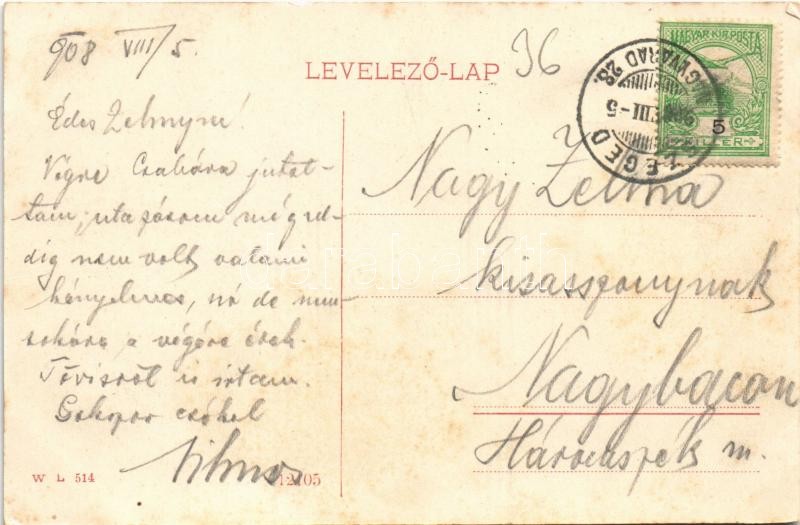 908 VIII/5.
LEVELEZŐ-LAP
36
MAGYAR KIR. POSTA
5
FILLÉR
SZEGED NAGYVÁRAD 28.
908 VIII-5
Édes Zelmym!
Végre Csabára jutot-
tam, utazásom még ed-
dig nem volt valami
kényelmes, nó de nem-
sokára a végére érek.
Tövisről is írtam.
Sokszor csókol
Vilmos
Nagy Zelma
kisasszonynak
Nagybacon
Háromszék m.
W L 514
12705